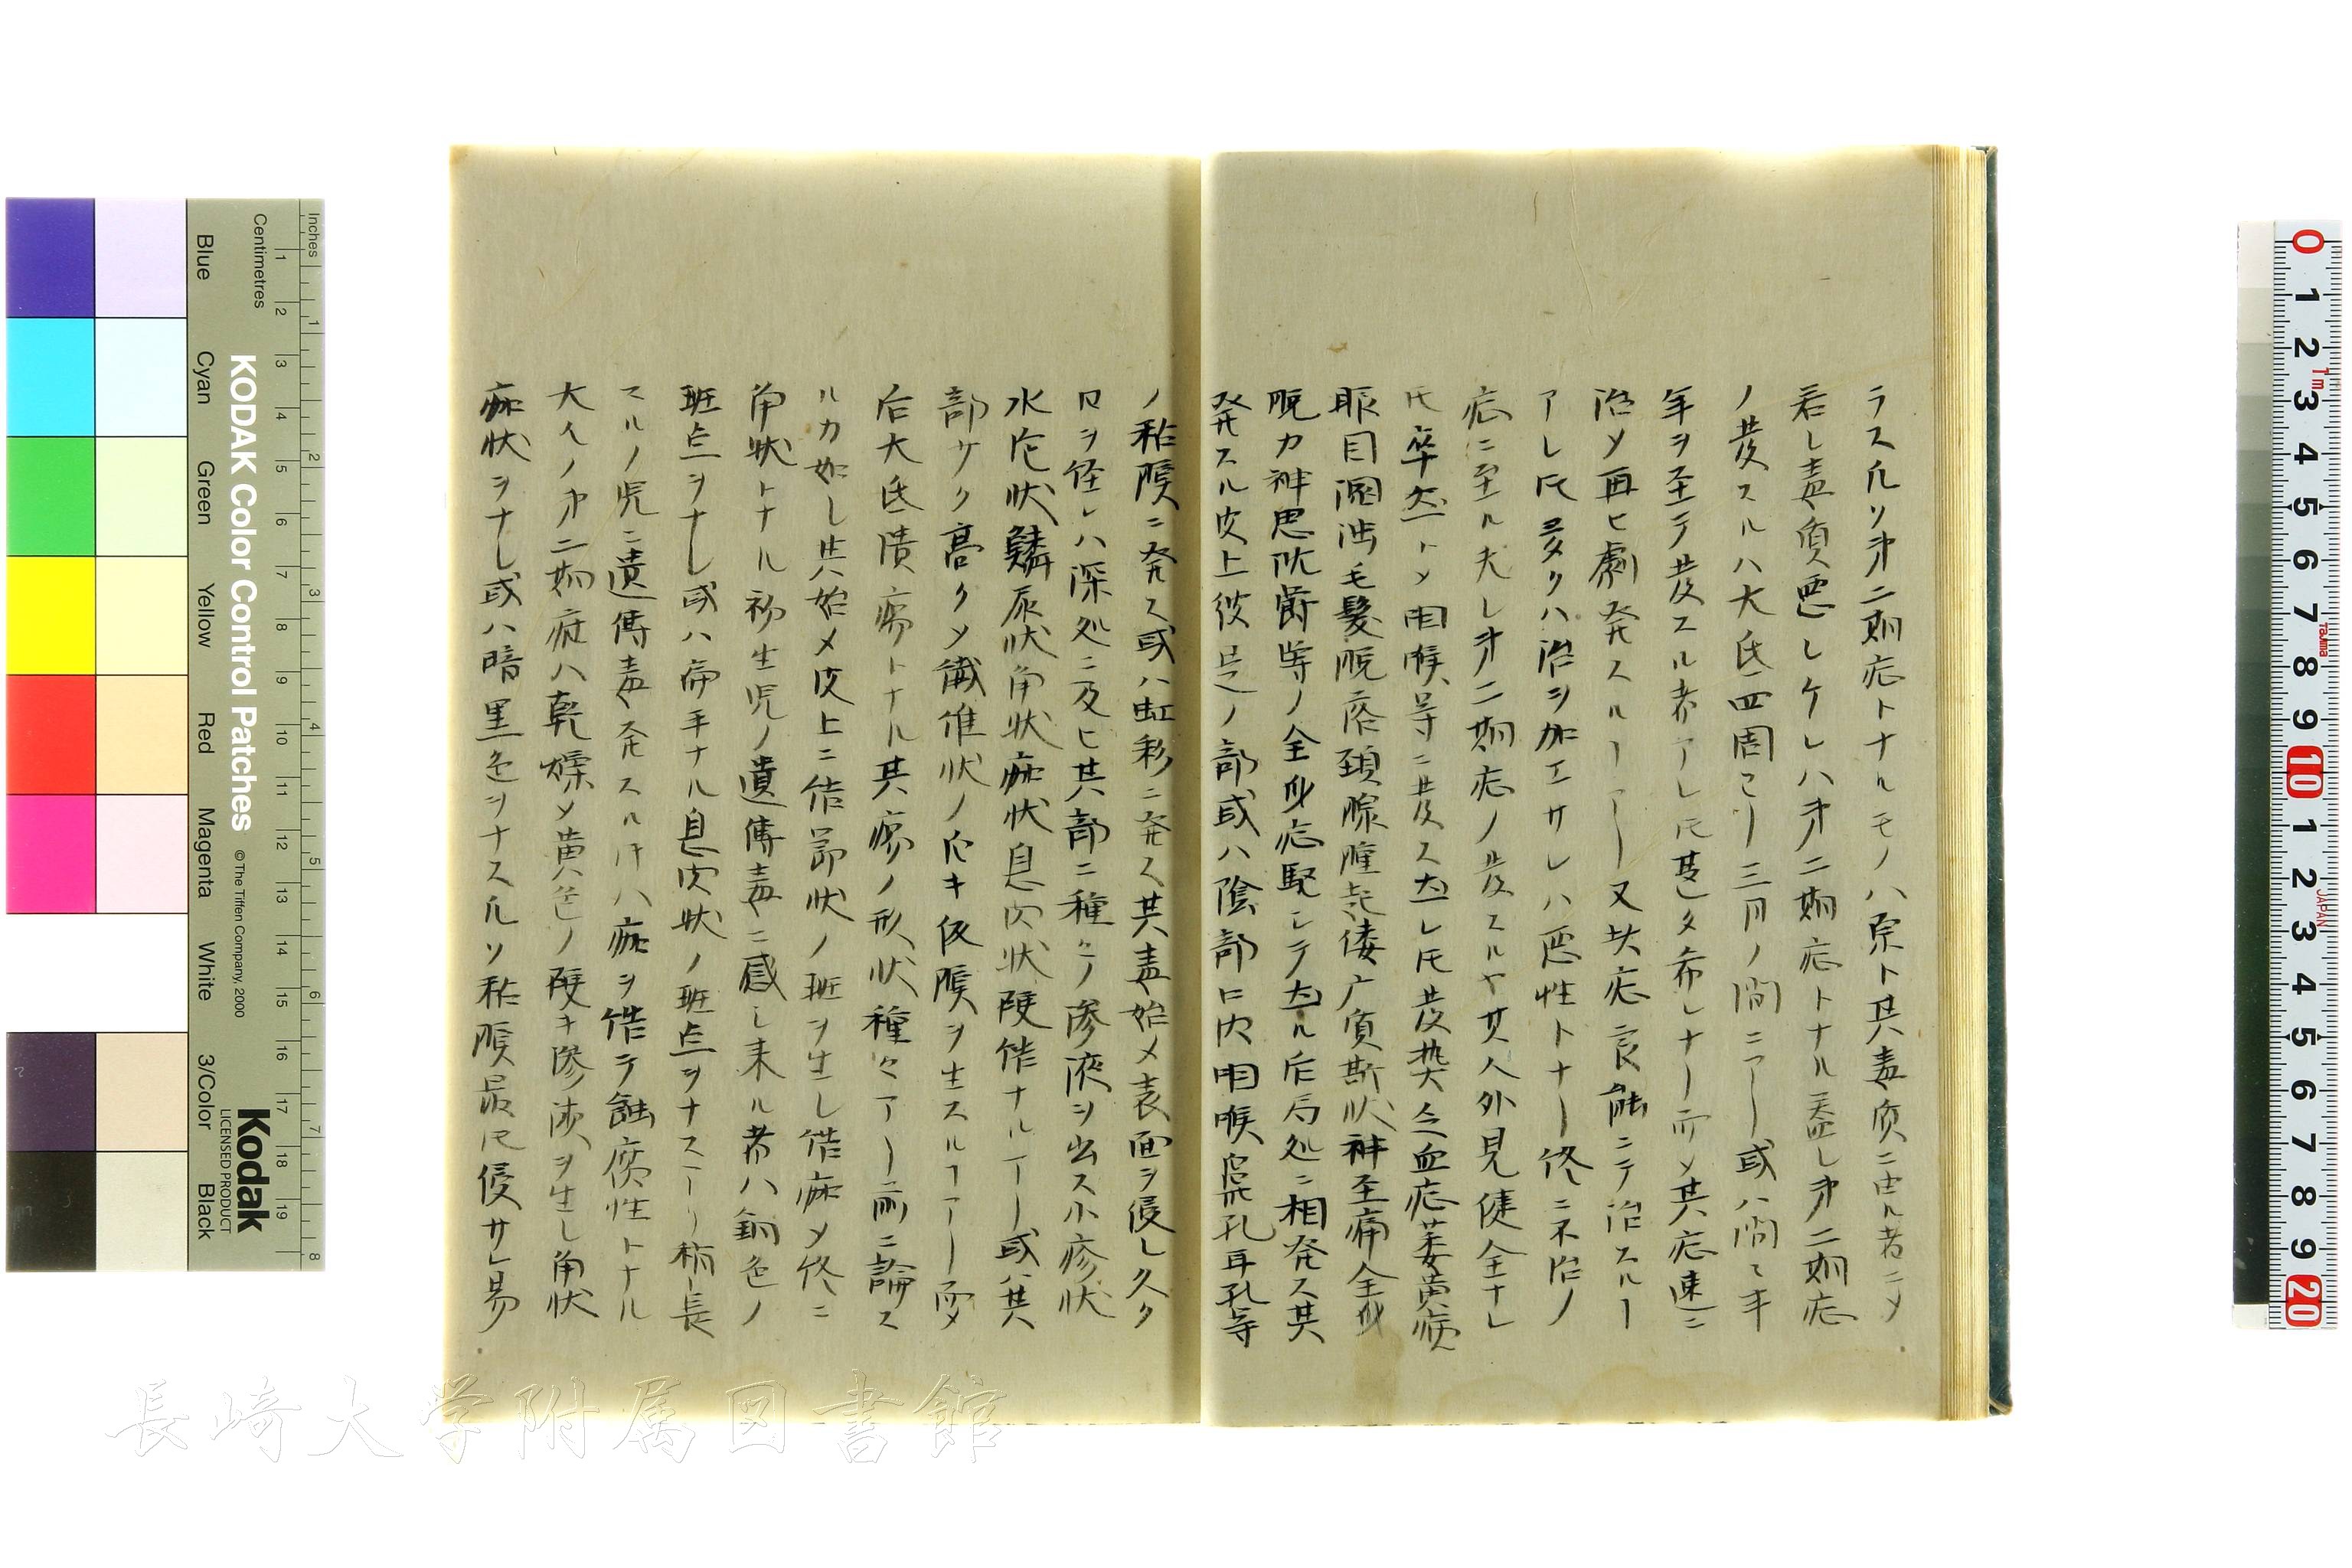 ラス凡ソ第二期症トナルモノハ原ト其毒質ニ由ル者ニメ
若シ毒質悪シケレハ第二期症トナル盖シ第二期症
ノ発スルハ大氐四周ヨリ三月ノ間ニアリ或ハ間々半
年ヲ至テ発スル者アレ氏甚タ希レナリ而メ其症速ニ
治メ再ヒ劇発スルヿアリ又其症良能ニテ治スルヿ
アレ氏多クハ治ヲ加エサレハ悪性トナリ終ニ不治ノ
症ニ至ル夫レ第二期症ノ発スルヤ其人外見健全ナレ
氏卒然トメ咽喉等ニ発ス然レ氏発熱乏血症萎黄病
眼目涸渋毛髪脱落頚腺腫起偻广質斯状神至痛全身
脱力神思沈欝等ノ全身症堅シテ然ル后局処ニ相発ス其
発スル皮上彼是ノ部或ハ陰部口内咽喉鼻孔耳孔等
ノ粘膜ニ発ス或ハ虹彩ニ発ス其毒始メ表面ヲ侵シ久タ
ロヲ経レハ深処ニ及ヒ其部ニ種々ノ滲液ヲ出ス小疹状
水疱状鱗屑状角状痂状息肉状硬結ナルアリ或ハ其
部サク高クメ織維状ノ如キ仮膜ヲ生スルヿアリ而メ
后大氐潰瘍トナル其瘍ノ形状種々アリ前ニ論ス
ルカ如シ其始メ皮上ニ結節状ノ斑ヲ生シ結痂メ終ニ
角状トナル初生児ノ遺傳毒ニ感シ来ル者ハ銅色ノ
斑点ヲナシ或ハ扁平ナル息肉状ノ斑点ヲナスアリ稍長
スルノ児ニ遺傳毒発スル片ハ痂ヲ結テ蝕腐性トナル
大人ノ第二期症ハ乾燥メ黄色ノ硬キ滲液ヲ生シ角状
痂状ヲナシ或ハ暗里色ヲナス凡ソ粘膜最氏侵サレ易
Inches
Centimetres
KODAK Color Control Patches
©The Tiffen Company, 2000
Kodak
LICENSED PRODUCT
Blue
Cyan
Green
Yellow
Red
Magenta
White
3/Color
Black
長崎大学附属図書館